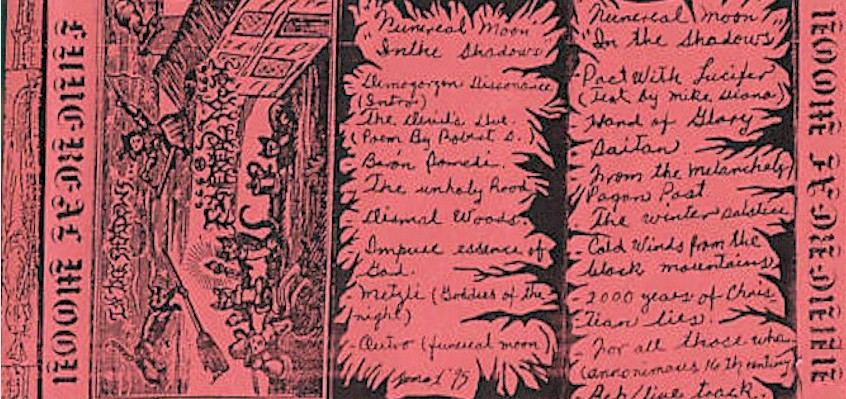 FUNEREAL MOON
IN THE SHADOWS...
"Funereal Moon
In the Shadows"
- Demogorgon Dissonance
(Intro)
- The Devil's Due
(Poem By Robert S.)
- Baron Pomedi.
- The unholy Rood
- Dismal Woods.
- Impure essence of
God.
- Metzli (Goddess of the
night)
- Outro (funereal moon)
'95
"Funereal moon
"In the Shadows"
- Pact With Lucifer
(Text by Mike Diana)
- Hand of Glory
- Saitan
- From the Melancholy
Pagan Past
- The winter solstice
- Cold Winds from the
black mountains
- 2000 years of Chris
tian lies.
- For all those who
(annonimous 16 th century)
Reh/live track.
FUNEREAL MOON